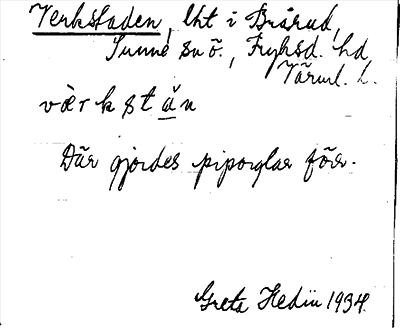 Verkstaden, lht i Brårud,
Sunne sn ö., Fryksd. hd,
Värml. l.
værkstån
Där gjordes piporglar förr.
Greta Hedin 1934.